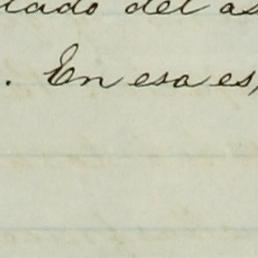 lado del as
. En esa es